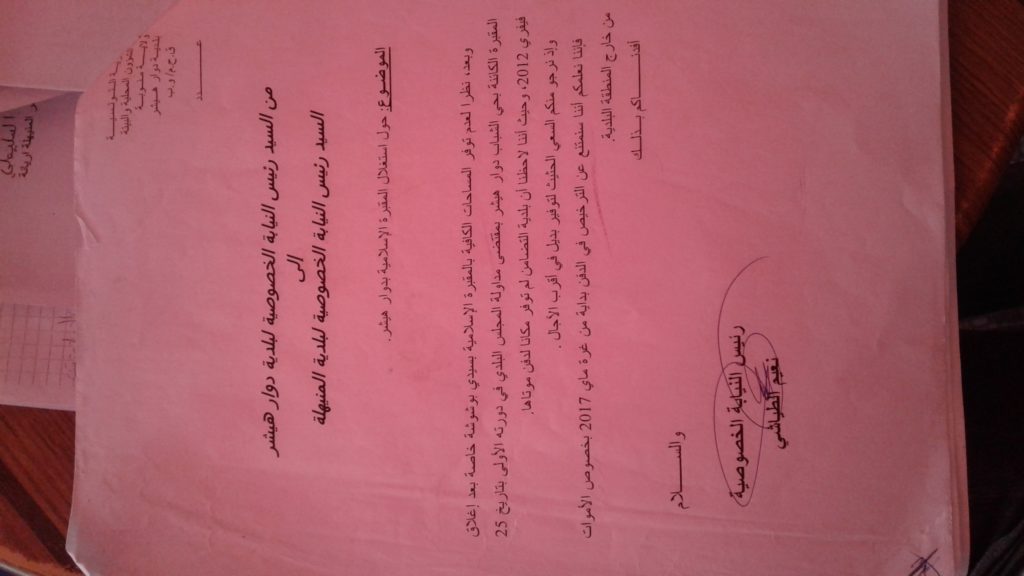 الشؤون المحلية والبيئة
بلدية دوار هيشر
عـــــــدد
من السيد رئيس النيابة الخصوصية لبلدية دوار هيشر
إلى
السيد رئيس النيابة الخصوصية لبلدية المنيهلة
الموضوع: حول استغلال المقبرة الإسلامية بدوار هيشر.
وبعد، نظرا لعدم توفر المساحات الكافية بالمقبرة الإسلامية بسيدي بوشوشة خاصة بعد إغلاق
المقبرة الكائنة بحي الشباب دوار هيشر بمقتضى مداولة المجلس البلدي في دورته الأولى بتاريخ 25
فيفري 2012، وحيث أننا لاحظنا أن بلدية التضامن لم توفر مكانا لدفن موتاها.
وإذ نرجو منكم السعي الحثيث لتوفير بديل في أقرب الآجال.
فإننا نعلمكم أننا سنمتنع عن الترخيص في الدفن بداية من غرة ماي 2017 بخصوص الأموات
من خارج المنطقة البلدية.
أفدنـــــاكم بذلـــك
والســـــلام
رئيس النيابة الخصوصية
نعيم الطياشي